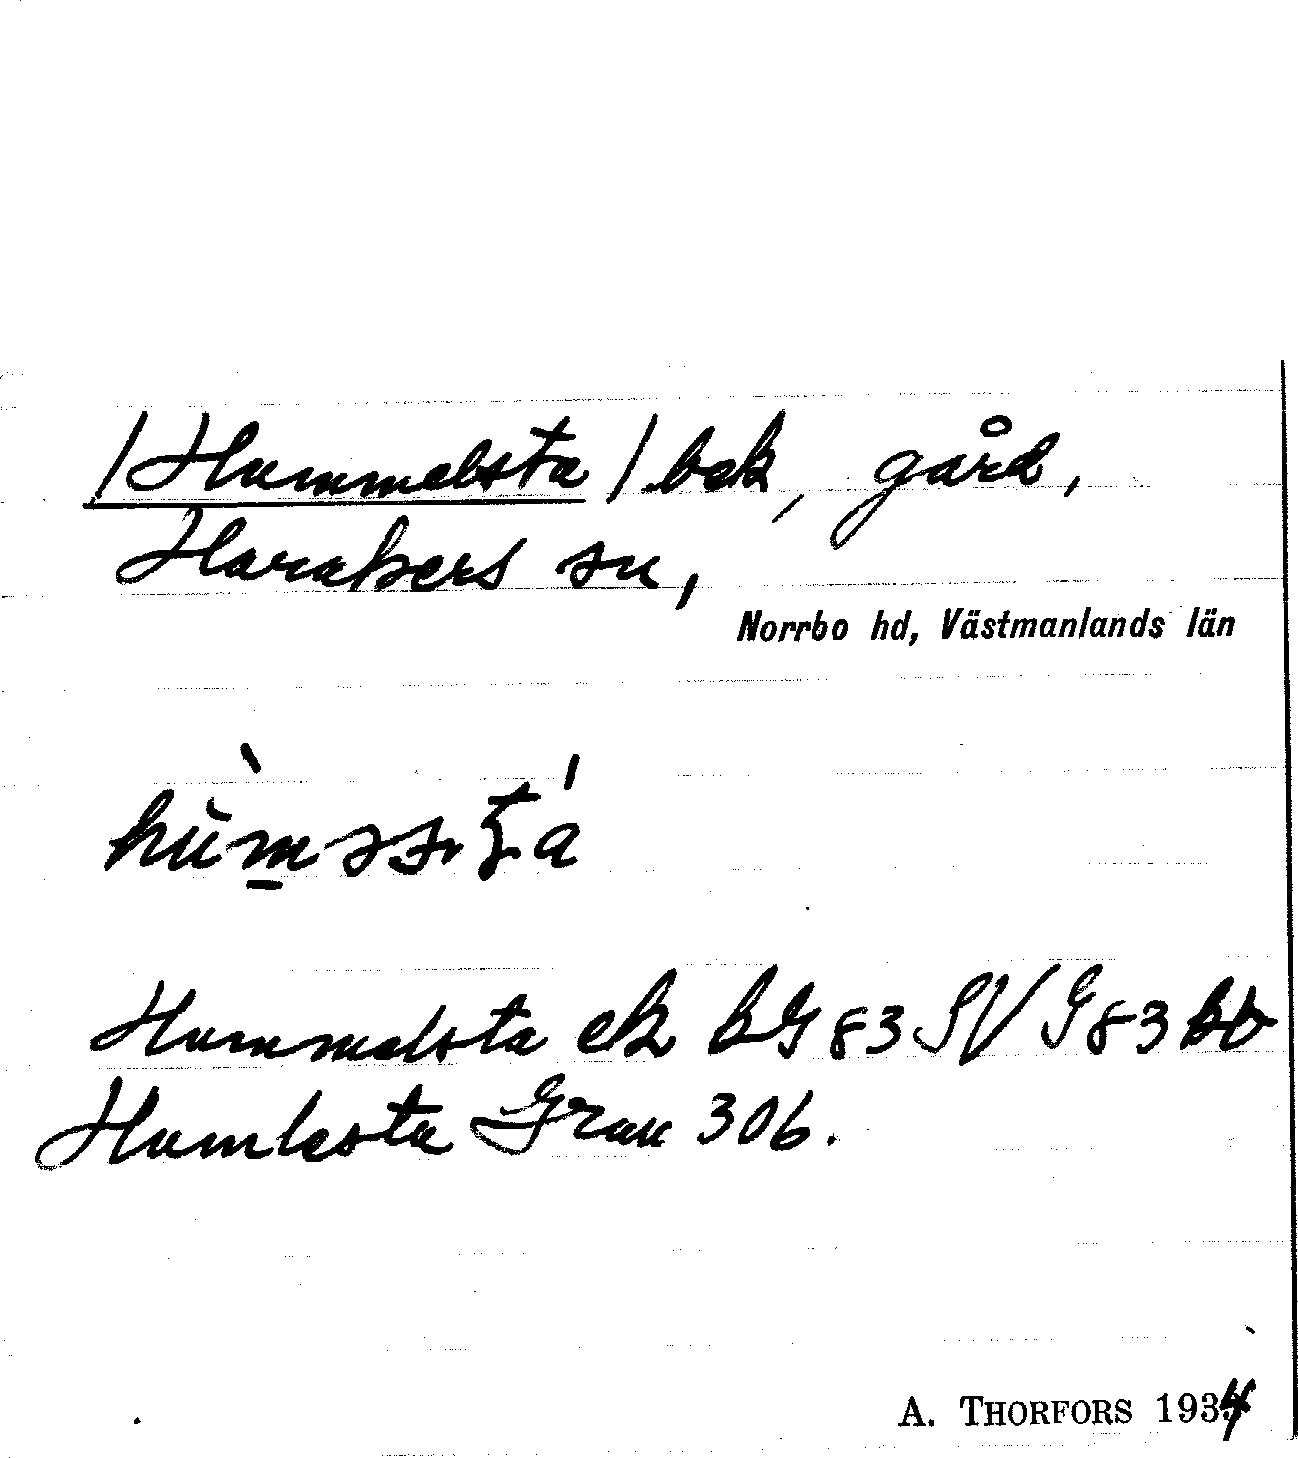 /Hummelsta/ bek, gård,
Harakers sn,
Norrbo hd, Västmanlands län
Hummelsta ek bG 83 SV G 83 bb
Humlesta Grau 306.
A. THORFORS 1934